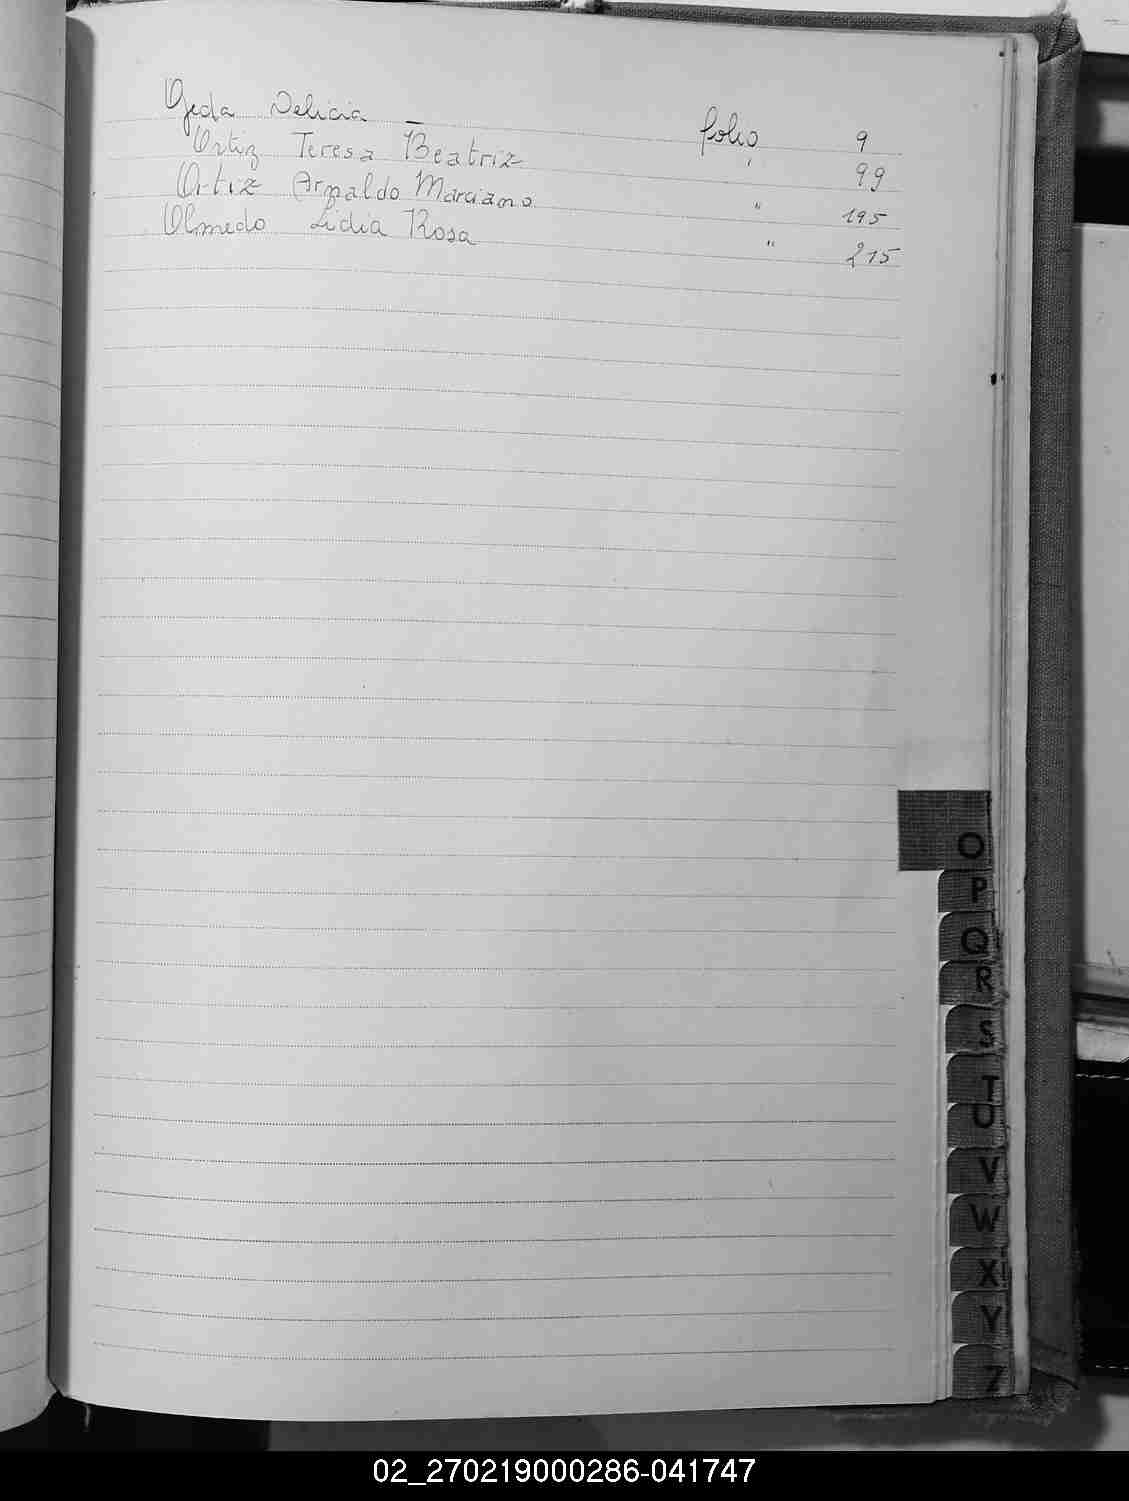 Ojeda Delicia - folio 9
Ortiz Teresa Beatriz " 99
Ortiz Arnaldo Marciano " 195
Olmedo Lidia Rosa " 215
O
P
Q
R
S
T
U
V
W
X
Y
Z
02_270219000286-041747